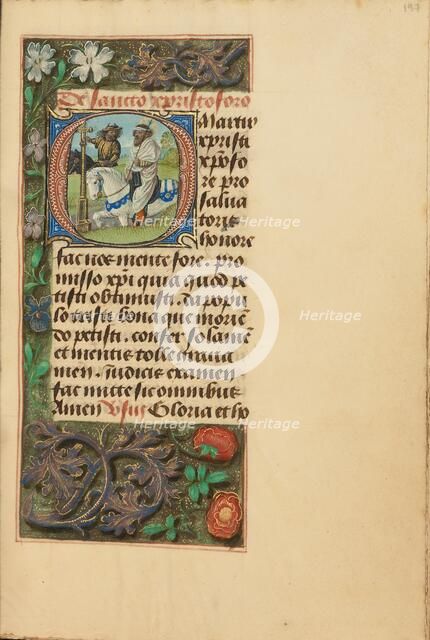 197
De sancto xpristoforo
O Martir
xpristi
xpofo
re pro
salua
toris
honore
fac nos mente fore. pro
misso xpi quia quod pe
tisti obtinuisti. da popu
lo tristi bona que morien
do petisti. confer solamē
et mentis tolle graua
men. iudicis examen
fac mitte sit omnibus
Amen Vsus Gloria et ho
Heritage
Heritage
Heritage
Heritage
Heritage
Heritage